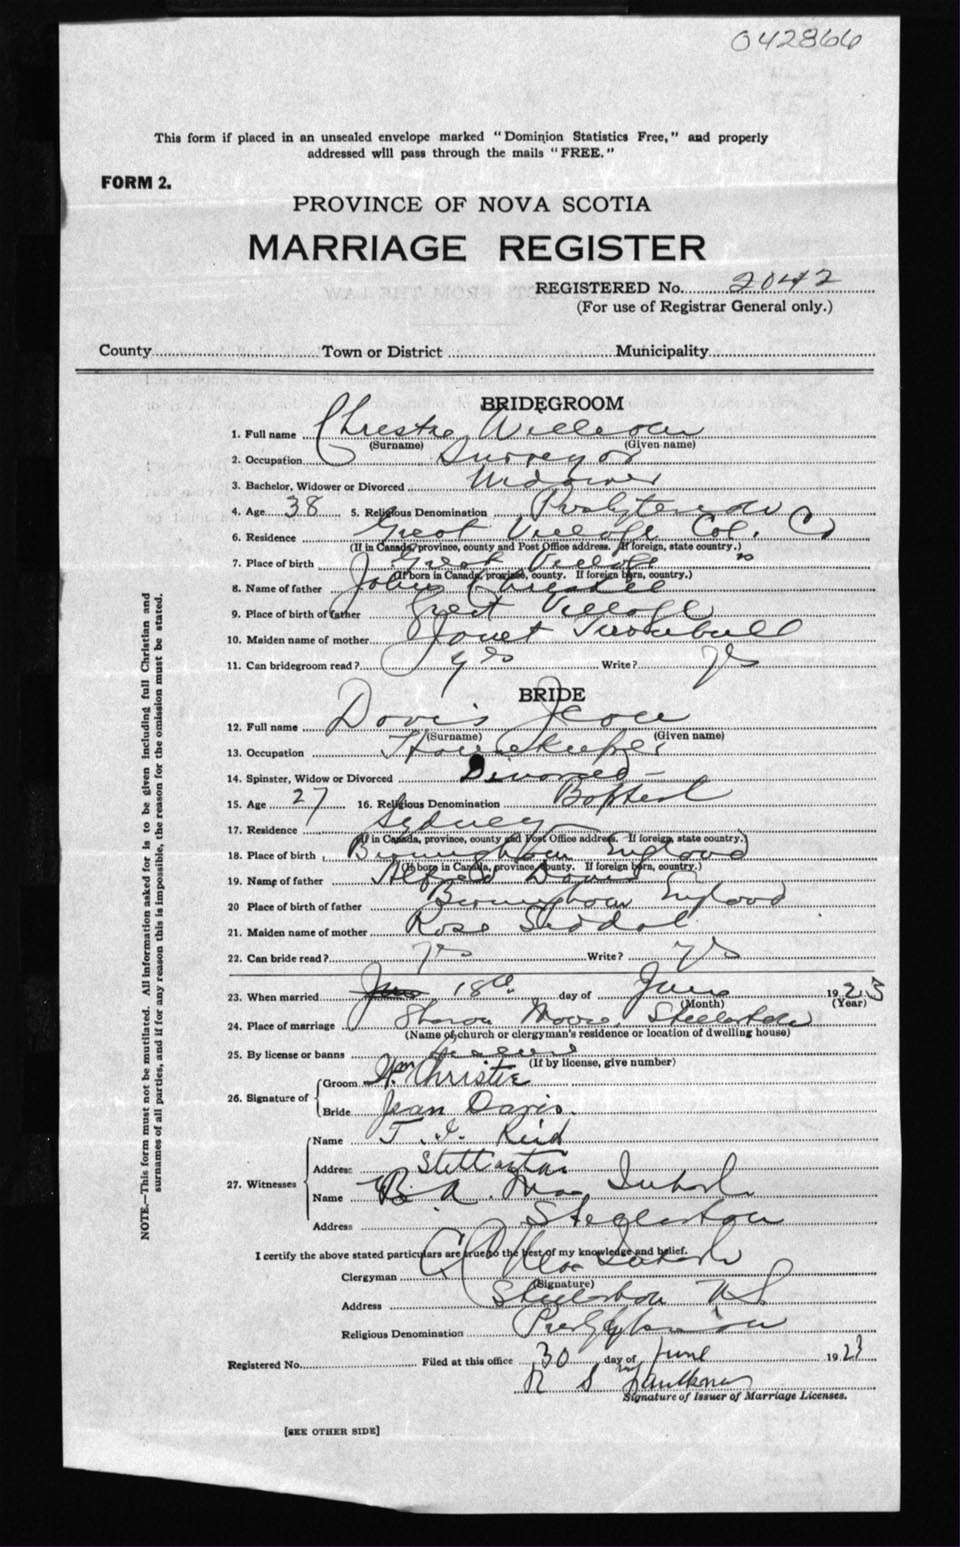 042866
This form if placed in an unsealed envelope marked "Dominion Statistics Free," and properly
addressed will pass through the mails "FREE."
FORM 2.
PROVINCE OF NOVA SCOTIA
MARRIAGE REGISTER
REGISTERED No. 2042
(For use of Registrar General only.)
County Town or District Municipality
BRIDEGROOM
1. Full name Christie William
(Surname) (Given name)
2. Occupation Surveyor
3. Bachelor, Widower or Divorced Widower
4. Age 38 5. Religious Denomination Presbyterian
6. Residence Great Village Col. Co
(If in Canada, province, county and Post Office address. If foreign, state country.)
7. Place of birth Great Village
(If born in Canada, province, county. If foreign born, country.)
8. Name of father John Christie
9. Place of birth of father Great Village
10. Maiden name of mother Janet Turnbull
11. Can bridegroom read? yes Write? yes
BRIDE
12. Full name Davis Jean
(Surname) (Given name)
13. Occupation Housekeeper
14. Spinster, Widow or Divorced Divorced
15. Age 27 16. Religious Denomination Baptist
17. Residence Sydney
(If in Canada, province, county and Post Office address. If foreign, state country.)
18. Place of birth Birmingham England
(If born in Canada, province, county. If foreign born, country.)
19. Name of father Alfred Davis
20 Place of birth of father Birmingham England
21. Maiden name of mother Rose Siddal
22. Can bride read? yes Write? yes
23. When married June 18th day of June 1923
(Month) (Year)
24. Place of marriage Manse, Stellarton
(Name of church or clergyman's residence or location of dwelling house)
25. By license or banns License
(If by license, give number)
26. Signature of Groom Wm Christie
Bride Jean Davis.
27. Witnesses Name T. I. Reid
Address Stellarton
Name B A. Mac
Address Stellarton
I certify the above stated particulars are true to the best of my knowledge and belief.
Clergyman
(Signature)
Address Stellarton N S
Religious Denomination Presbyterian
Registered No. Filed at this office 30 day of June 1923
R S Faulkner
Signature of Issuer of Marriage Licenses.
[SEE OTHER SIDE]
NOTE.—This form must not be mutilated. All information asked for is to be given including full Christian and
surnames of all parties, and if for any reason this is impossible, the reason for the omission must be stated.